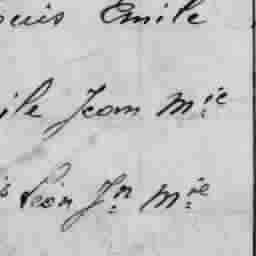 ouis Emile
ile Jean Mie
s Léon Jn Mie